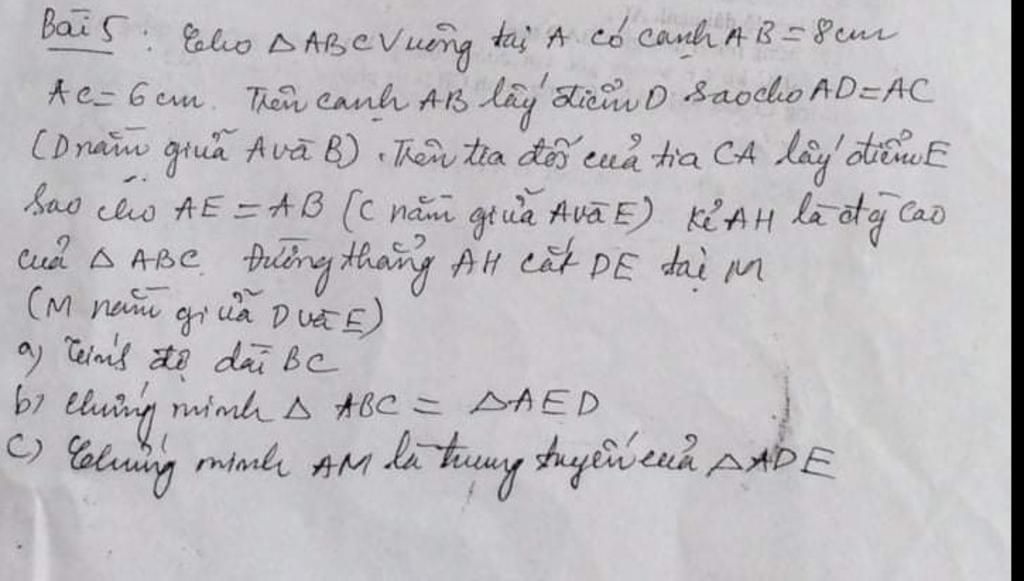 Bài 5 : Cho △ ABC Vuông tại A có cạnh AB = 8 cm
AC = 6 cm. Trên cạnh AB lấy điểm D sao cho AD = AC
(D nằm giữa A và B). Trên tia đối của tia CA lấy điểm E
sao cho AE = AB (C nằm giữa A và E) Kẻ AH là đg cao
của △ ABC. Đường thẳng AH cắt DE tại M
(M nằm giữa D và E)
a) Tính độ dài BC
b) Chứng minh △ ABC = △AED
C) Chứng minh AM là trung tuyến của △ADE